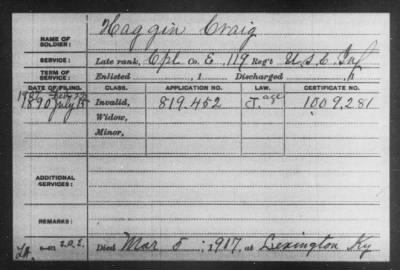 NAME OF SOLDIER: Haggin Craig
SERVICE: Late rank, Cpl Co. E, 119 Reg't U.S.C. Inf
TERM OF SERVICE: Enlisted , 1 Discharged , 1
DATE OF FILING. CLASS. APPLICATION NO. LAW. CERTIFICATE NO.
1890 July 15 Invalid, 819.452 J. age 1009.281
Widow,
Minor,
ADDITIONAL SERVICES:
REMARKS:
Died Mar 5 , 1917, at Lexington Ky